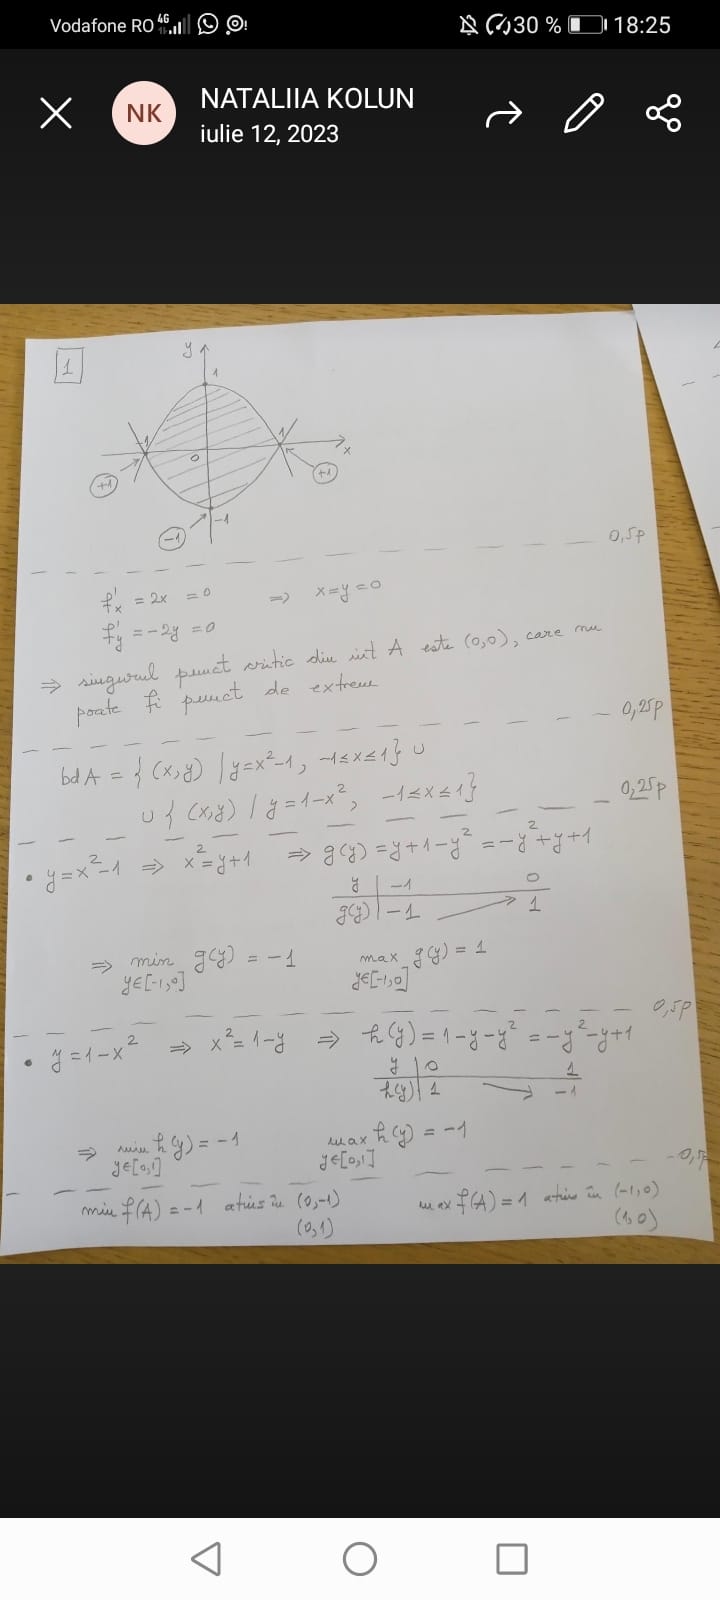 Vodafone RO 4G 30 % 18:25
NK NATALIIA KOLUN
iulie 12, 2023
1
y
1
-1 0 1 x
+1 +1
-1 -1
0,5p
f'x = 2x = 0 ⇒ x=y=0
f'y = -2y = 0
⇒ singurul punct critic din int A este (0,0), care nu
poate fi punct de extrem
0,25p
bd A = { (x,y) | y=x²-1, -1≤x≤1} ∪
∪ { (x,y) / y = 1-x², -1≤x≤1}
0,25p
• y=x²-1 ⇒ x²=y+1 ⇒ g(y) = y+1-y² = -y²+y+1
y | -1 0
g(y) | -1 → 1
⇒ min g(y) = -1 max g(y) = 1
y∈[-1,0] y∈[-1,0]
0,5p
• y=1-x² ⇒ x²=1-y ⇒ h(y) = 1-y-y² = -y²-y+1
y | 0 1
h(y) | 1 → -1
⇒ min h(y) = -1 max h(y) = -1
y∈[0,1] y∈[0,1]
0,5p
min f(A) = -1 atins în (0,-1) max f(A) = 1 atins în (-1,0)
(0,1) (1,0)